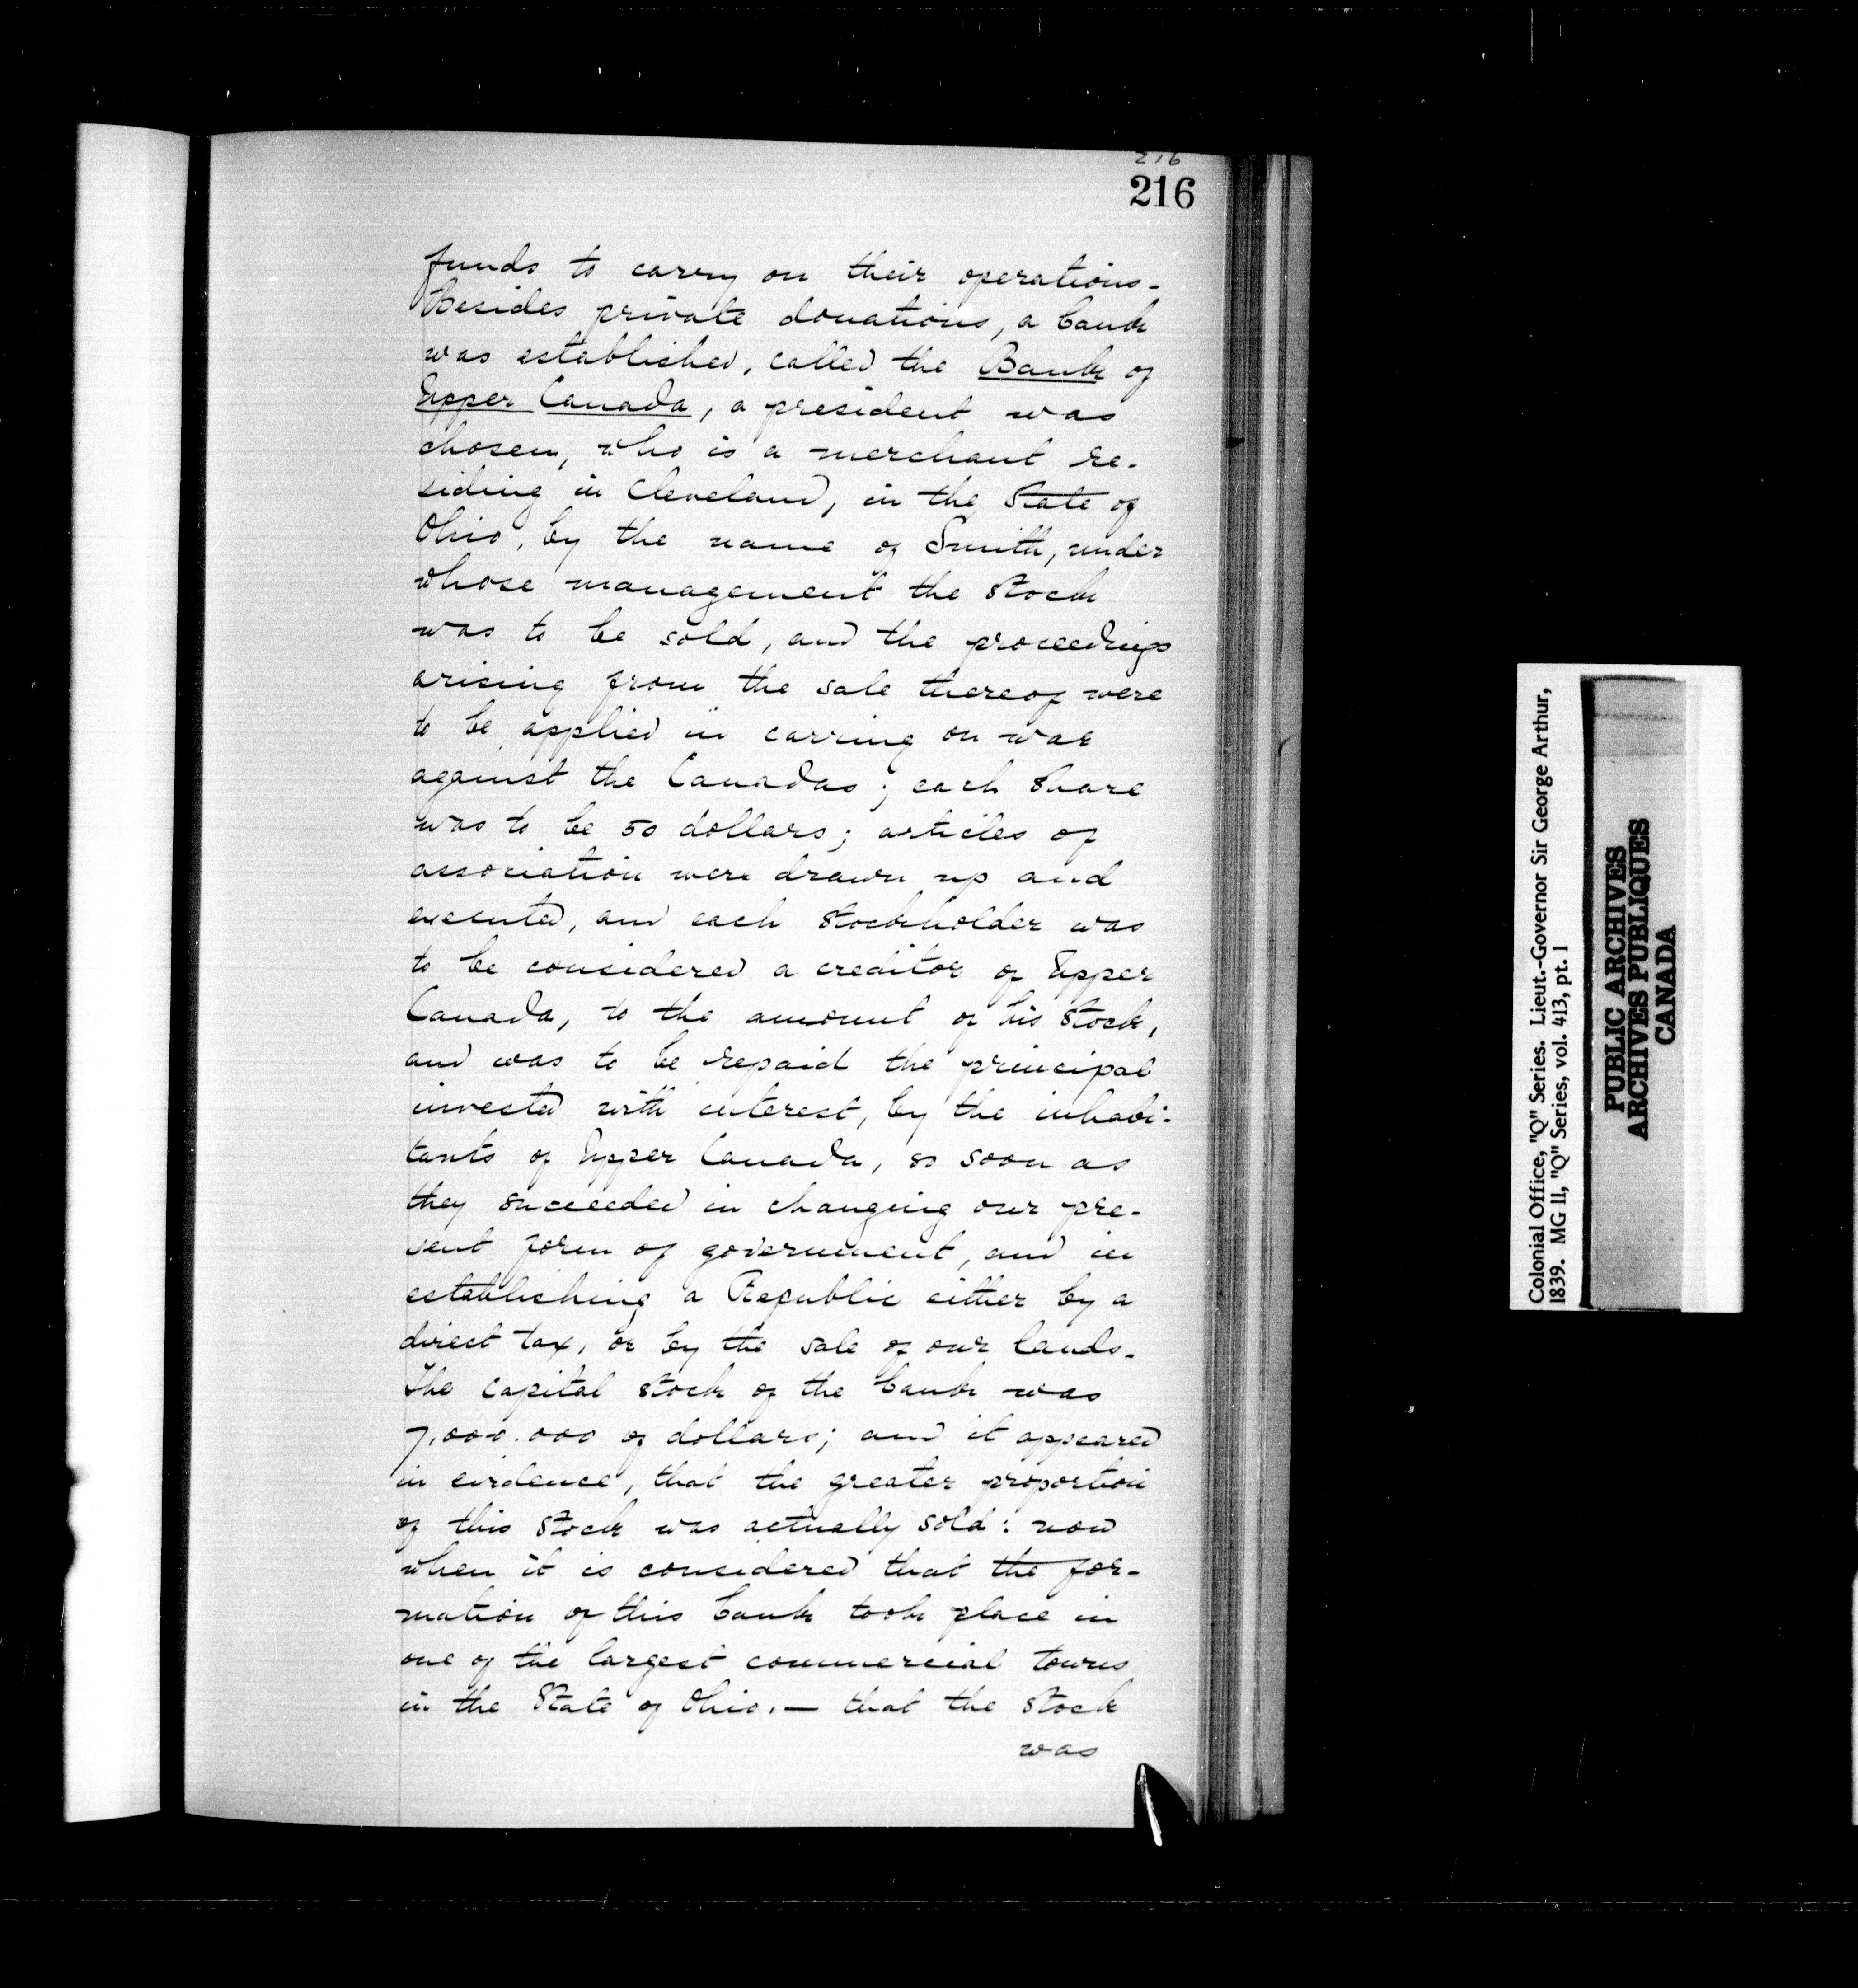 216
216
funds to carry on their operations.
Besides private donations, a bank
was established, called the Bank of
Upper Canada, a president was
chosen, who is a merchant re-
siding in Cleveland, in the State of
Ohio, by the name of Smith, under
whose management the stock
was to be sold, and the proceedings
arising from the sale thereof were
to be applied in carring on war
against the Canadas; each share
was to be 50 dollars; articles of
association were drawn up and
executed, and each stockholder was
to be considered a creditor of Upper
Canada, to the amount of his stock,
and was to be repaid the principal
invested with interest, by the inhabi-
tants of Upper Canada, so soon as
they succeeded in changing our pre-
sent form of government, and in
establishing a Republic either by a
direct tax, or by the sale of our lands.
The capital stock of the bank was
7,000.000 of dollars; and it appeared
in evidence, that the greater proportion
of this stock was actually sold: now
when it is considered that the for-
mation of this bank took place in
one of the largest commercial towns
in the State of Ohio,— that the stock
was
Colonial Office, "Q" Series. Lieut.-Governor Sir George Arthur,
1839. MG 11, "Q" Series, vol. 413, pt. 1
PUBLIC ARCHIVES
ARCHIVES PUBLIQUES
CANADA